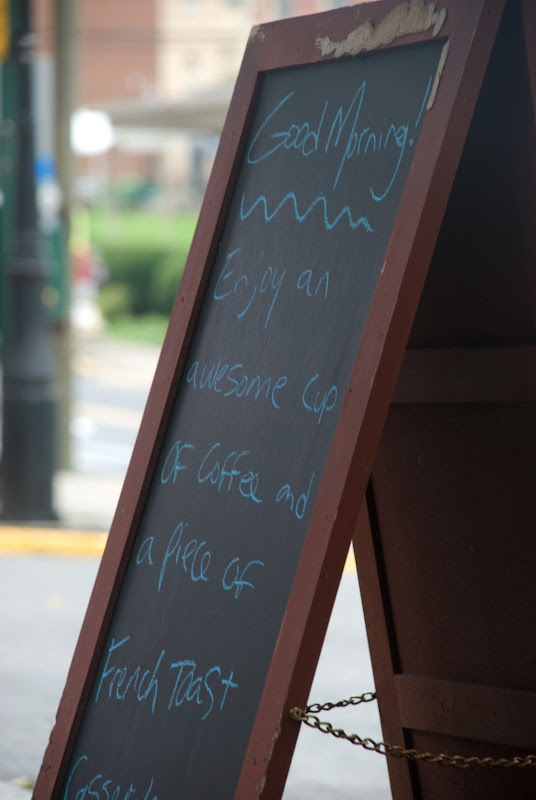 Good Morning!
Enjoy an
awesome cup
of coffee and
a piece of
French Toast